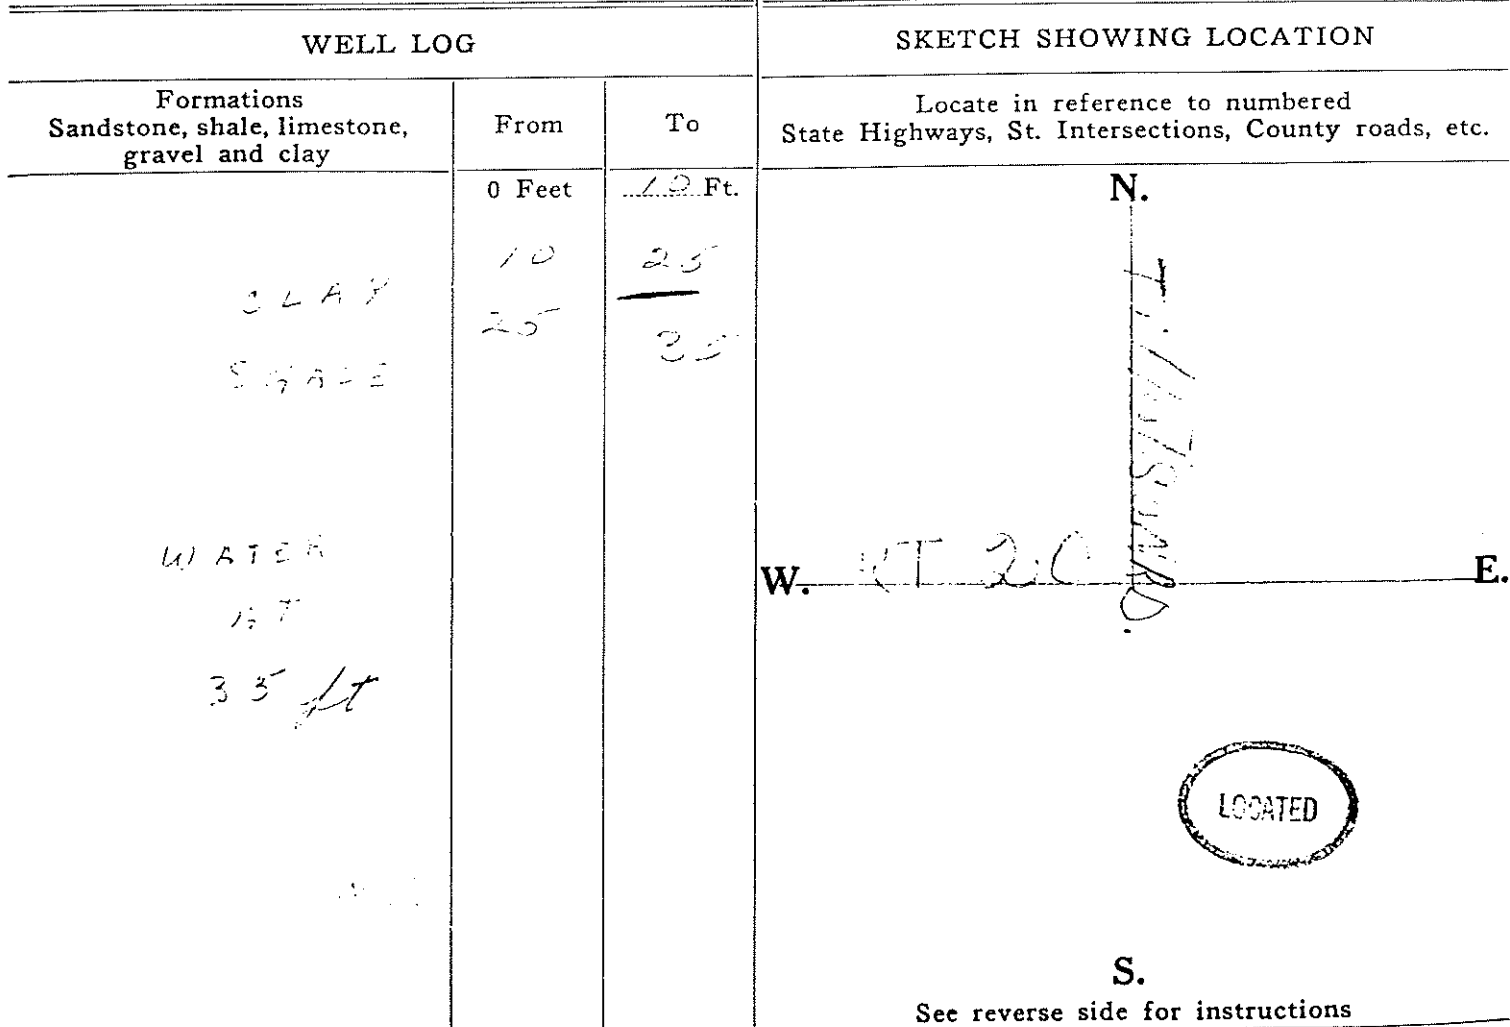 WELL LOG
Formations
Sandstone, shale, limestone,
gravel and clay
From
To
0 Feet
10 Ft.
10 25
CLAY
25 35
SHALE
WATER
AT
35 ft
SKETCH SHOWING LOCATION
Locate in reference to numbered
State Highways, St. Intersections, County roads, etc.
N.
W.
RT 20
E.
LOCATED
S.
See reverse side for instructions